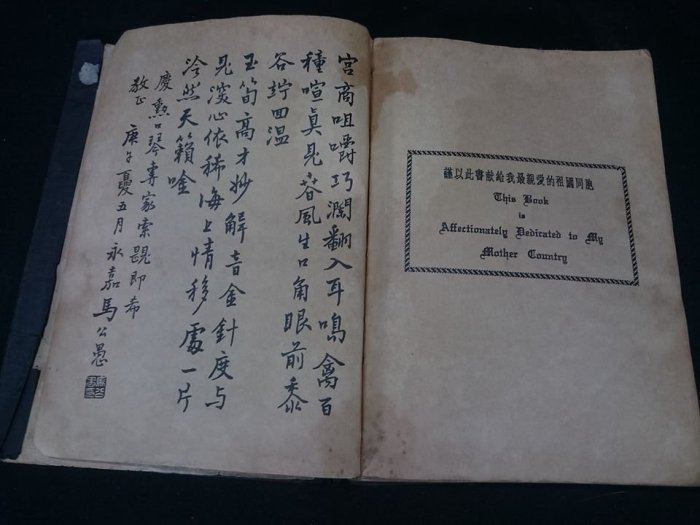 宮商咀嚼巧瀾翻入耳鳴禽百
種喧眞見春風生口角眼前黍
谷竚回温
玉筍高才妙解音金針度与
見深心依稀海上情移處一片
泠然天籟唫
慶勲口琴專家索題即希
教正 庚午夏五月永嘉馬公愚
謹以此書献給我最親愛的祖國同胞
This Book
is
Affectionately Dedicated to My
Mother Country